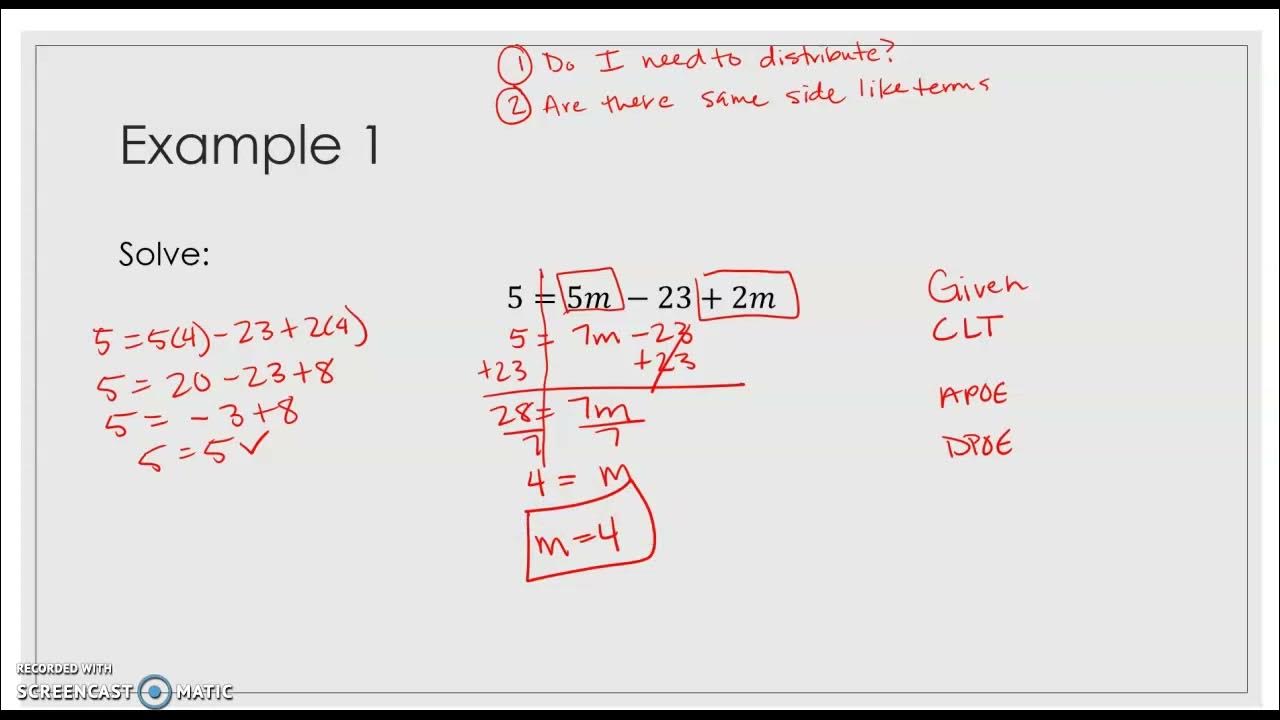 ① Do I need to distribute?
② Are there same side like terms
Example 1
Solve:
5 = 5m − 23 + 2m Given
5 = 7m − 23 CLT
+23 +23
28 = 7m APOE
7 7 DPOE
4 = m
m = 4
5 = 5(4) − 23 + 2(4)
5 = 20 − 23 + 8
5 = − 3 + 8
5 = 5 ✓
RECORDED WITH
SCREENCAST MATIC